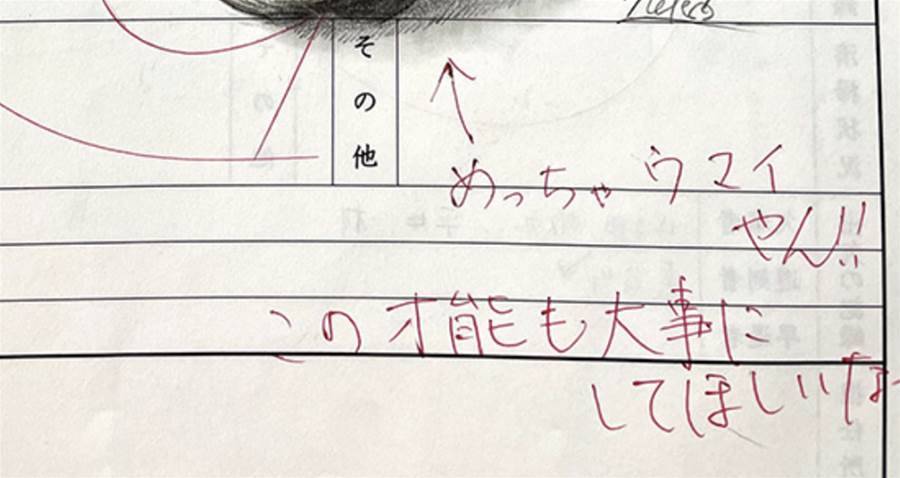 その他
めっちゃウマイ
やん!!
この才能も大事に
してほしいな